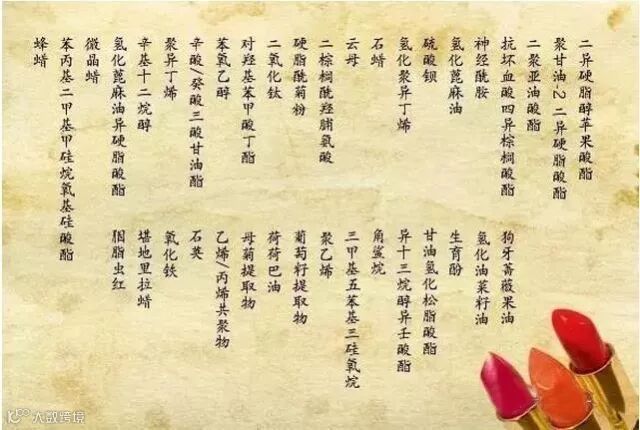 二异硬脂醇苹果酸酯
聚甘油-2 二异硬脂酸酯
二聚亚油酸酯
抗坏血酸四异棕榈酸酯
神经酰胺
氢化蓖麻油
硫酸钡
氢化聚异丁烯
石蜡
云母
二棕榈酰羟脯氨酸
硬脂酰菊粉
二氧化钛
对羟基苯甲酸丁酯
苯氧乙醇
辛酸/癸酸三酸甘油酯
聚异丁烯
辛基十二烷醇
氢化蓖麻油异硬脂酸酯
微晶蜡
蜂蜡
苯丙基二甲基甲硅烷氧基硅酸酯
狗牙蔷薇果油
氢化油菜籽油
生育酚
甘油氢化松脂酸酯
异十三烷醇异壬酸酯
角鲨烷
三甲基五苯基三硅氧烷
聚乙烯
葡萄籽提取物
荷荷巴油
母菊提取物
乙烯/丙烯共聚物
石英
氧化铁
堪地里拉蜡
胭脂虫红
大数跨境